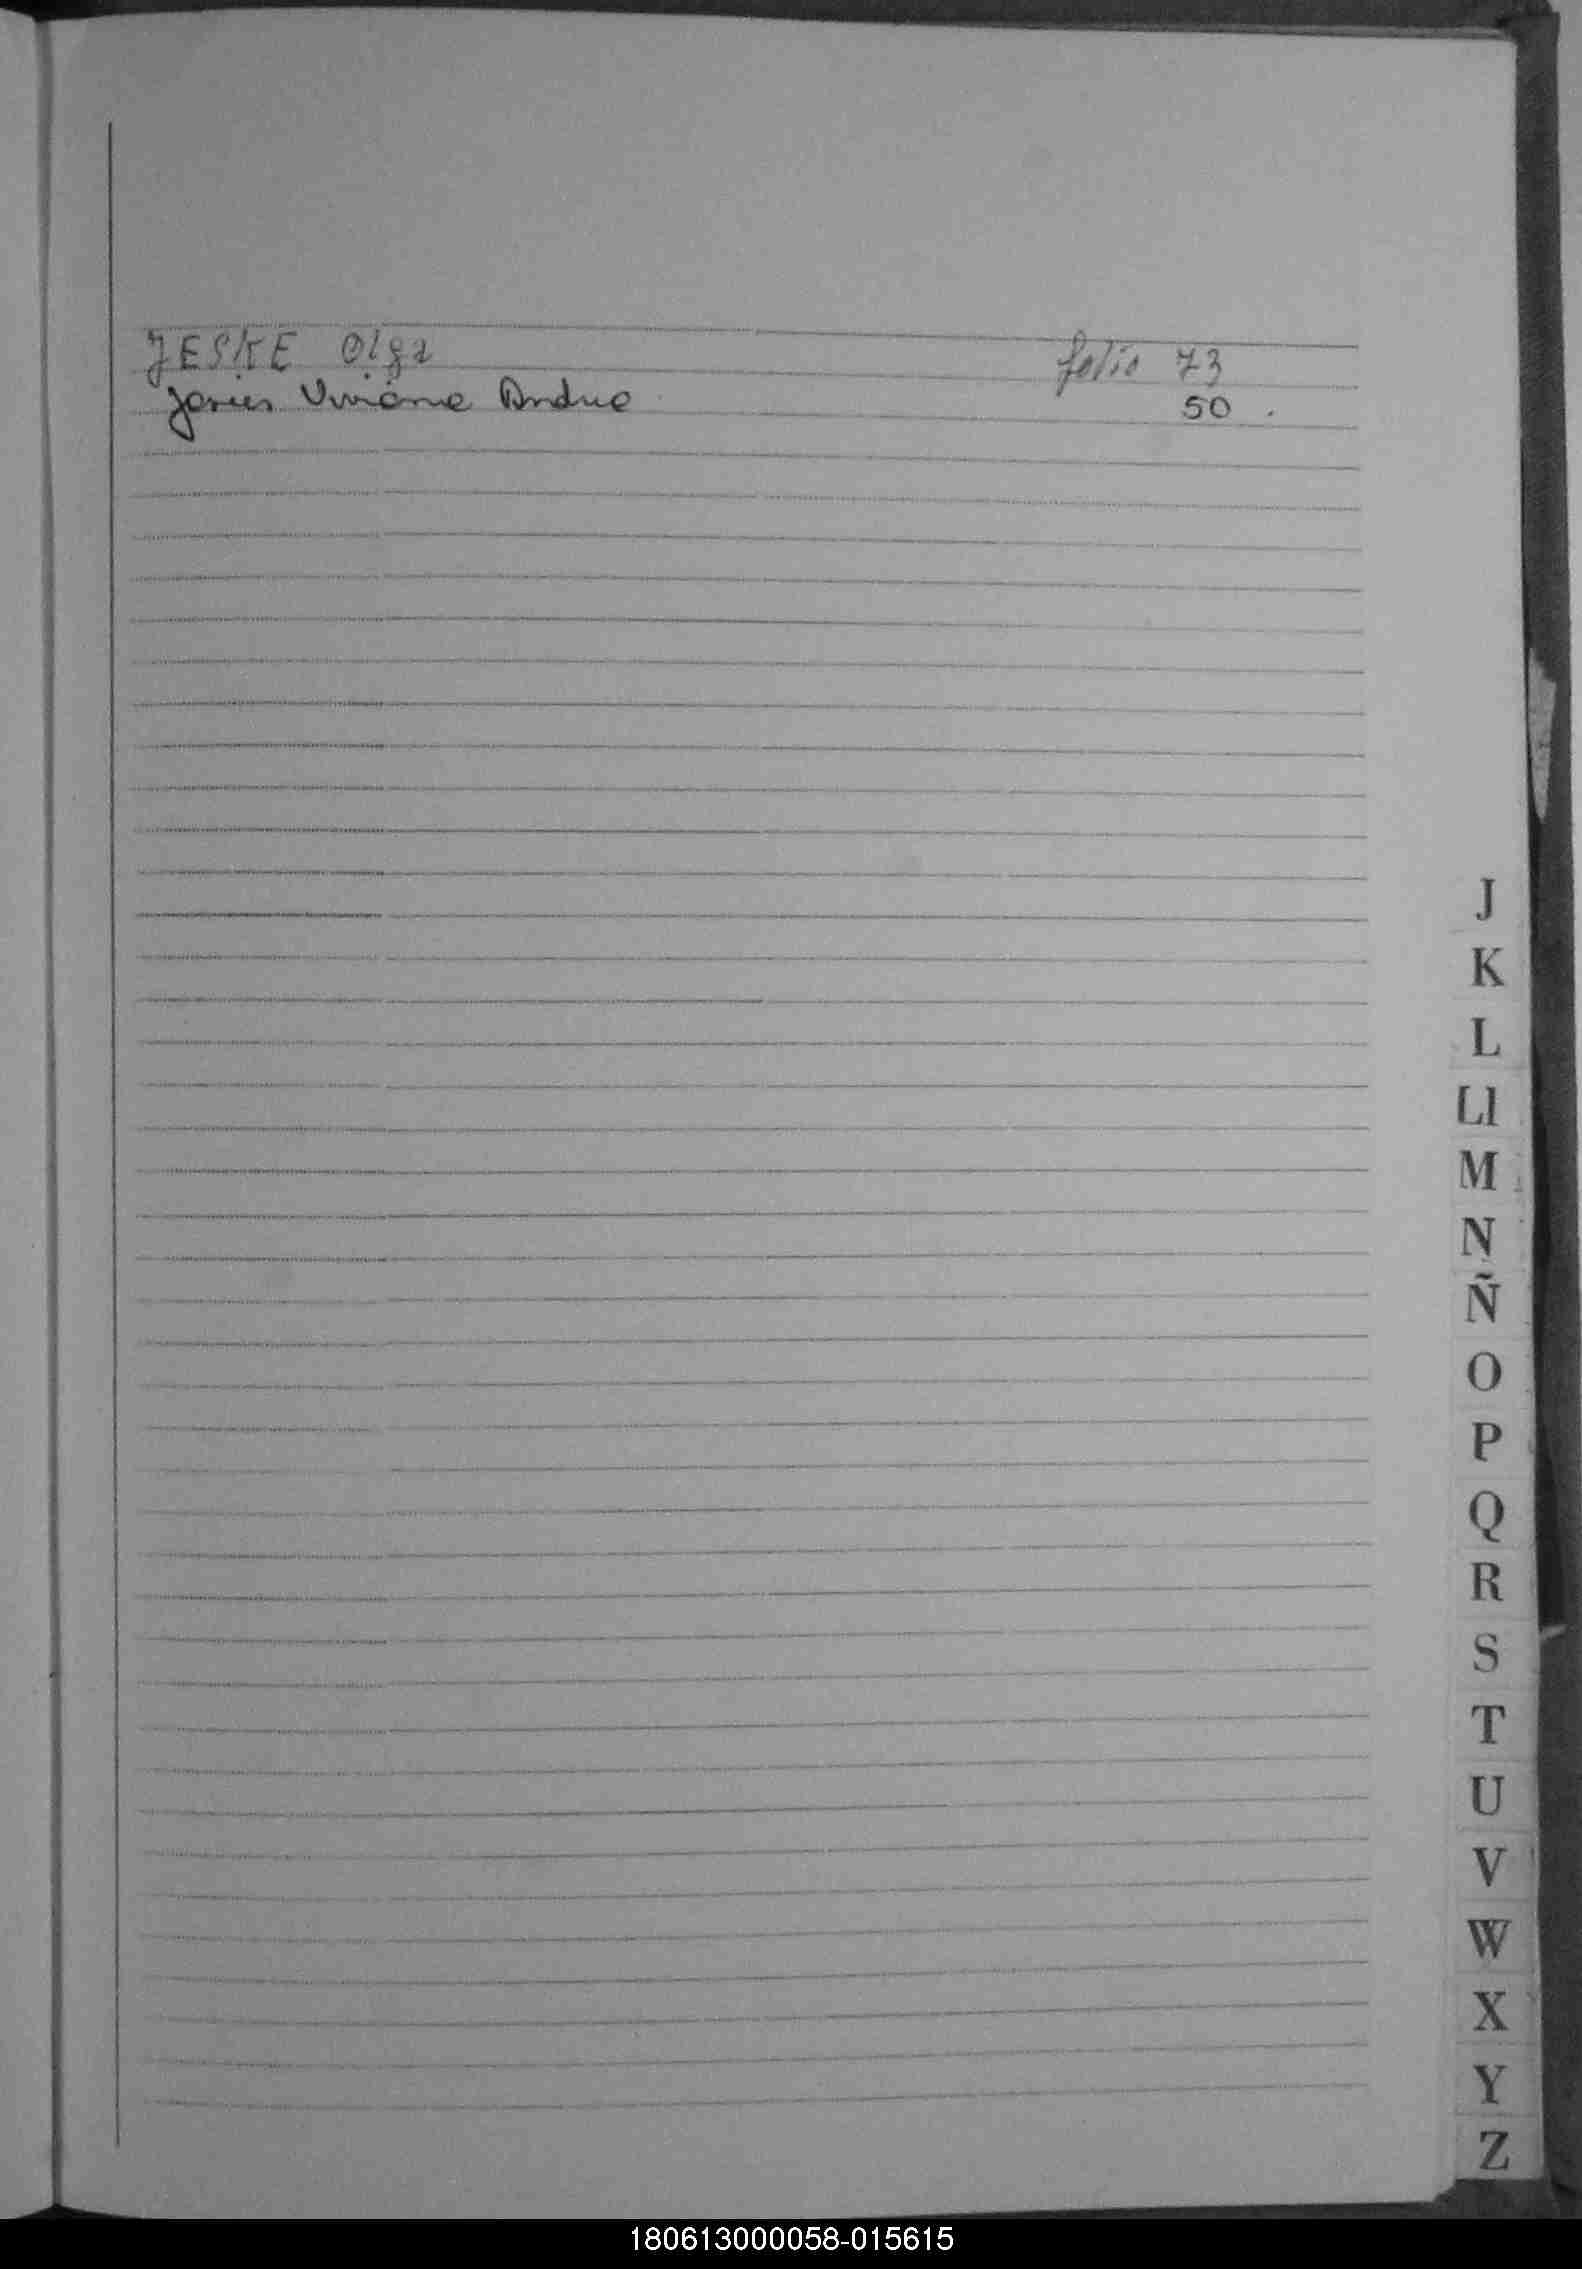 JESKE Olga folio 73
Viviana Andrea 50
J
K
L
Ll
M
N
Ñ
O
P
Q
R
S
T
U
V
W
X
Y
Z
180613000058-015615